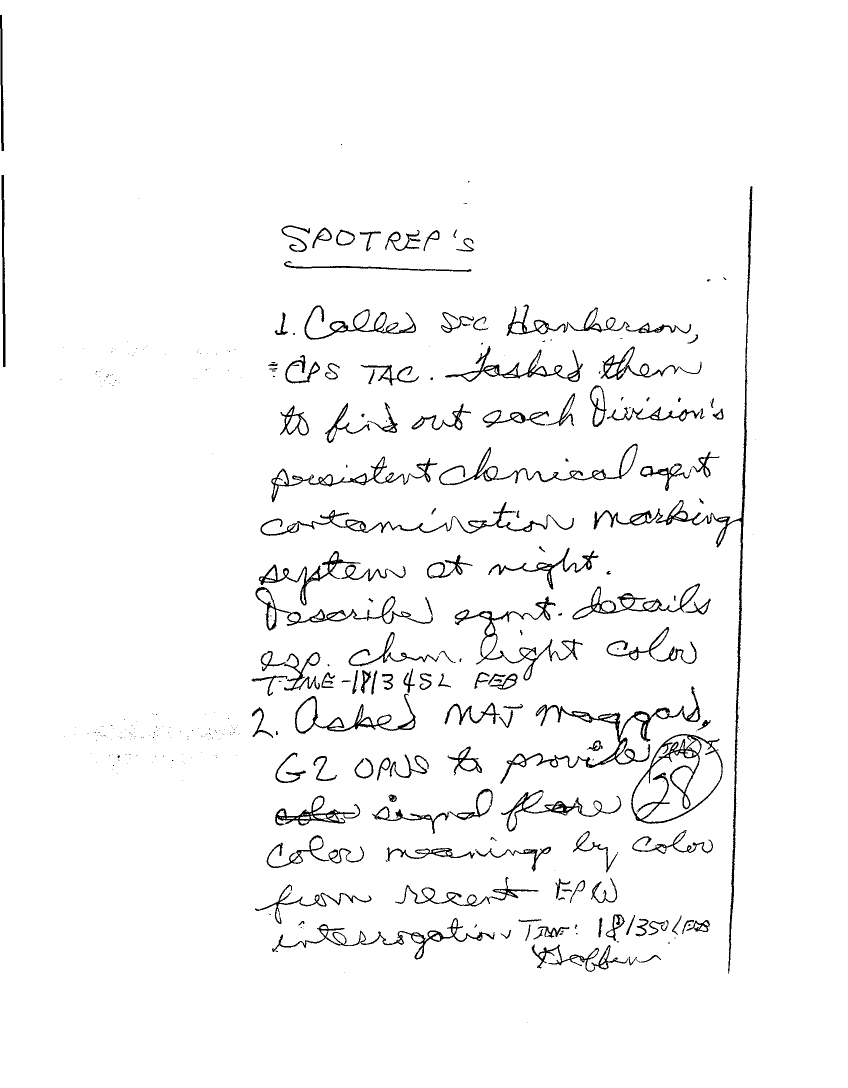 SPOTREP's
1. Called SFC Hankerson,
CPS TAC. Tasked them
to find out each Division's
persistent chemical agent
contamination marking
system at night.
Describe eqmt. details
esp. chem. light color
TIME - 181345L FEB
2. Asked MAJ Maggard,
G2 OPNS to provide IRAQI
signal flare
color meanings by color
from recent EPW
interrogation. TIME: 181350L FEB
28